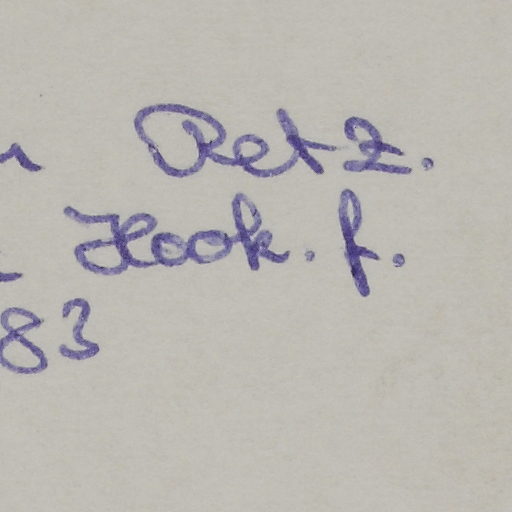 Retz.
Hook. f.
83